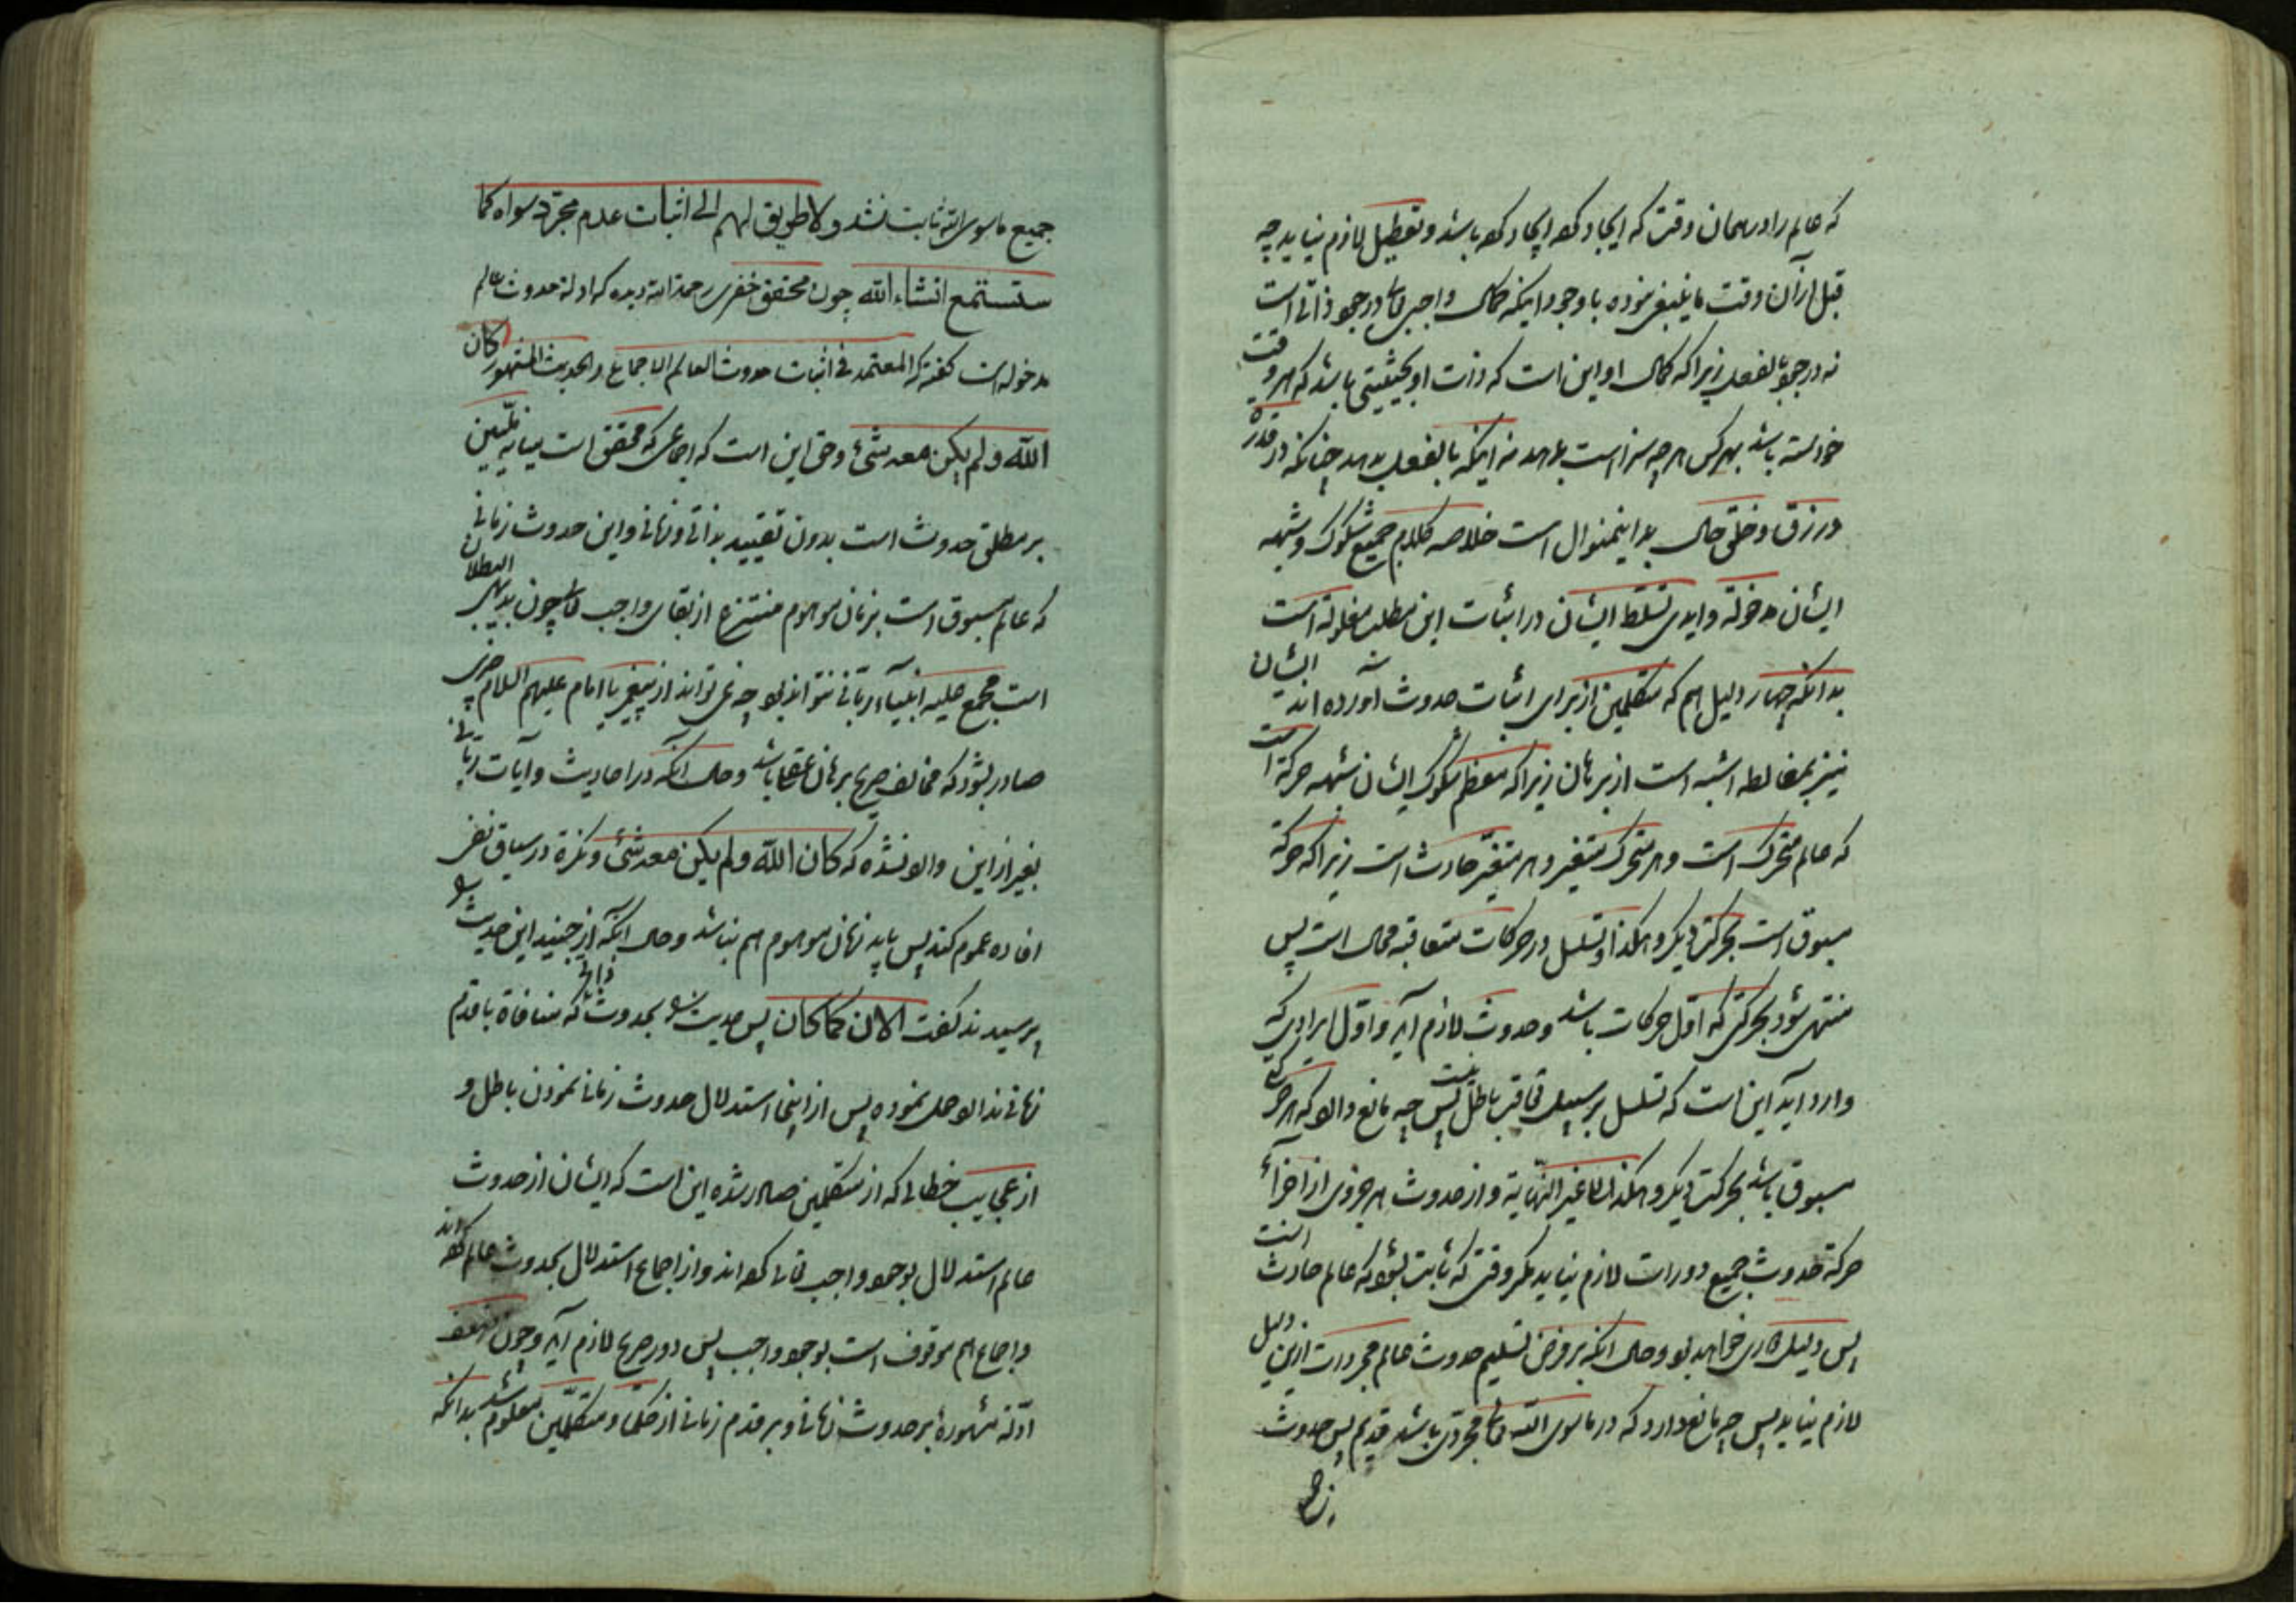 که عالم را در همان وقت که ایجاد کرده ایجاد کرده باشد و تعطیل لازم نیاید چه
قبل از آن وقت ما ینبغی نبوده با وجود اینکه کمال واجبی در جود ذاتی است
نه در جود بالفعل زیرا که کمال او این است که ذات او بحیثیتی باشد که هر وقت
خواسته باشد بهر کس هر چه سزا است بدهد نه اینکه بالفعل بدهد چنانکه در قدرة
در رزق و خلق حال بدینمنوال است خلاصه کلام جمیع شکوک و شبهه
ایشان مدخولة و ایدی تسلط ایشان در اثبات این مطلب مغلولة است
بدانکه چهار دلیل هم که متکلمین از برای اثبات حدوث آورده اند ایشان
نیز بمغالطه اشبه است از برهان زیرا که معظم شکوک ایشان شبهه حرکة است
که عالم متحرک است و هر متحرک متغیر و هر متغیر حادث است زیرا که حرکة
مسبوق است بحرکتی دیگر و هکذا و تسلسل در حرکات متعاقبه محال است پس
منتهی شود بحرکتی که اول حرکات باشد و حدوث لازم آید و اول ایرادی که
وارد آید این است که تسلسل بر سبیل تعاقب باطل نیست پس چه مانع دارد که هر حرکتی
مسبوق باشد بحرکت دیگر و هکذا الی غیر النهایة و از حدوث هر جزوی از اجزآء
حرکة حدوث جمیع دورات لازم نیاید مگر وقتی که ثابت بشود که عالم حادث است
پس دلیل دوری خواهد بود و حال آنکه بر فرض تسلیم حدوث عالم مجردات ازین دلیل
لازم نیاید پس چه مانع دارد که در ماسوی الله تعالی مجردی باشد قدیم پس حدوث
جمیع
جمیع ماسوی الله ثابت نشد و لا طریق لهم الی اثبات عدم مجرد سواه کما
ستستمع انشاء الله چون محقق خفری رحمة الله دیده که ادلة حدوث عالم
مدخوله است گفته که المعتمد فی اثبات حدوث العالم الاجماع و الحدیث المشهور کان
الله و لم یکن معه شیء و حق این است که اجماعی که محقق است میانه ملیین
بر مطلق حدوث است بدون تقیید بذاتی و زمانی و این حدوث زمانی
که عالم مسبوق است بزمان موهوم منتزع از بقای واجب تعالی چون بدیهی البطلان
است مجمع علیه انبیآء ربانی نتواند بود چه نمی تواند از پیغمبر یا امام علیهم السلام حرفی
صادر بشود که مخالف صریح برهان عقل باشد و حال آنکه در احادیث و آیات ربانی
بغیر از این وارد نشده که کان الله و لم یکن معه شیء و نکرة در سیاق نفی
افاده عموم کند پس باید زمان موهوم هم نباشد و حال آنکه از جنید این حدیث
پرسیدند گفت الان کما کان پس حدیث بحدوث ذاتی که منافاة با قدم
زمانی ندارد حمل نموده پس از اینجا استدلال حدوث زمانی نمودن باطل و
از عجایب خطائی که از متکلمین صادر شده این است که ایشان از حدوث
عالم استدلال بوجود واجب تعالی کرده اند و از اجماع استدلال بحدوث عالم کرده اند
و اجماع هم موقوف است بوجود واجب پس دور صریح لازم آید و چون ضعف
ادلة مشهورة بر حدوث زمانی و بر قدم زمانی از حکما و متکلمین معلوم شد بدانکه